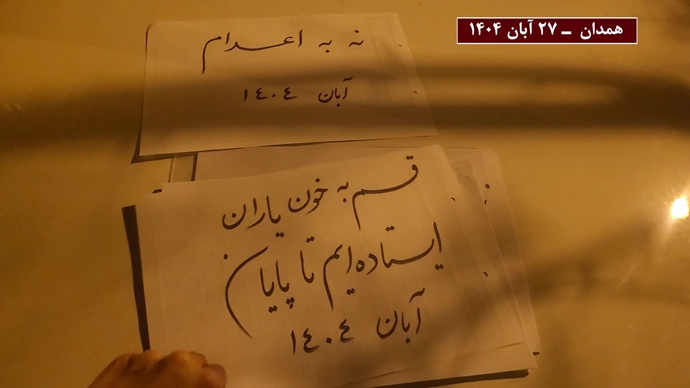 همدان – ۲۷ آبان ۱۴۰۴
نه به اعدام
آبان ۱٤۰٤
قسم به خون یاران
ایستاده‌ایم تا پایان
آبان ۱٤۰٤